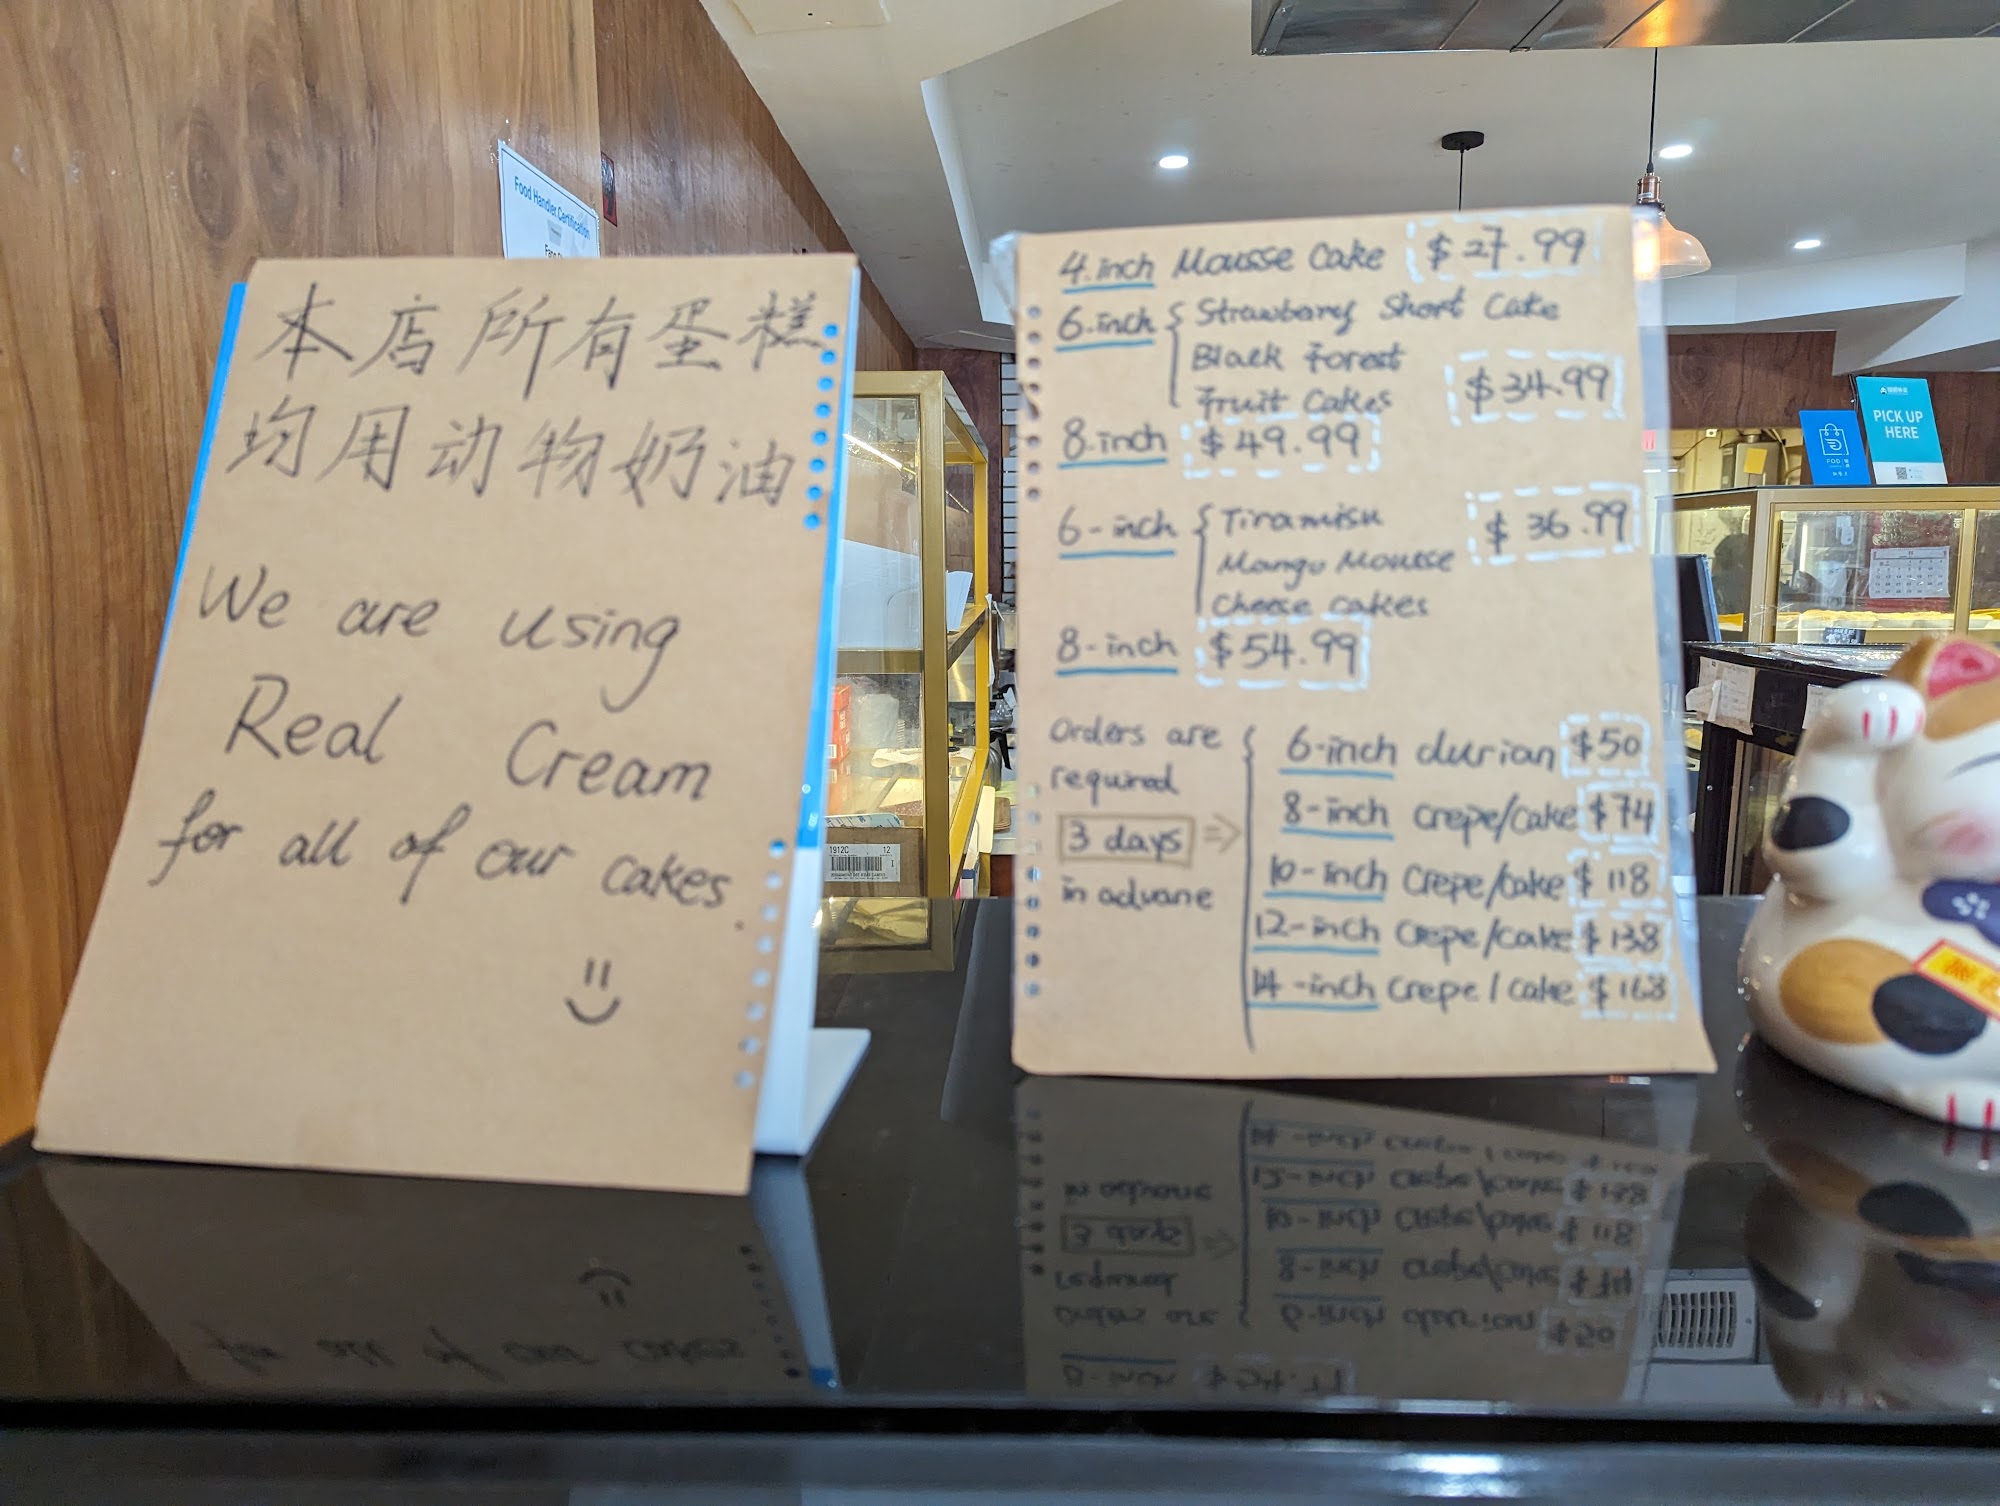 本店所有蛋糕
均用动物奶油
We are using
Real Cream
for all of our cakes.
4.inch Mousse Cake $27.99
6.inch { Strawberry Short Cake
Black Forest
Fruit Cakes $34.99
8.inch $49.99
6-inch { Tiramisu $36.99
Mango Mousse
Cheese cakes
8-inch $54.99
Orders are
required
3 days ⇒
in advane
6-inch durian $50
8-inch crepe/cake $74
10-inch crepe/cake $118
12-inch crepe/cake $138
14-inch crepe/cake $168
Food Handler Certification
PICK UP
HERE
1912C 12